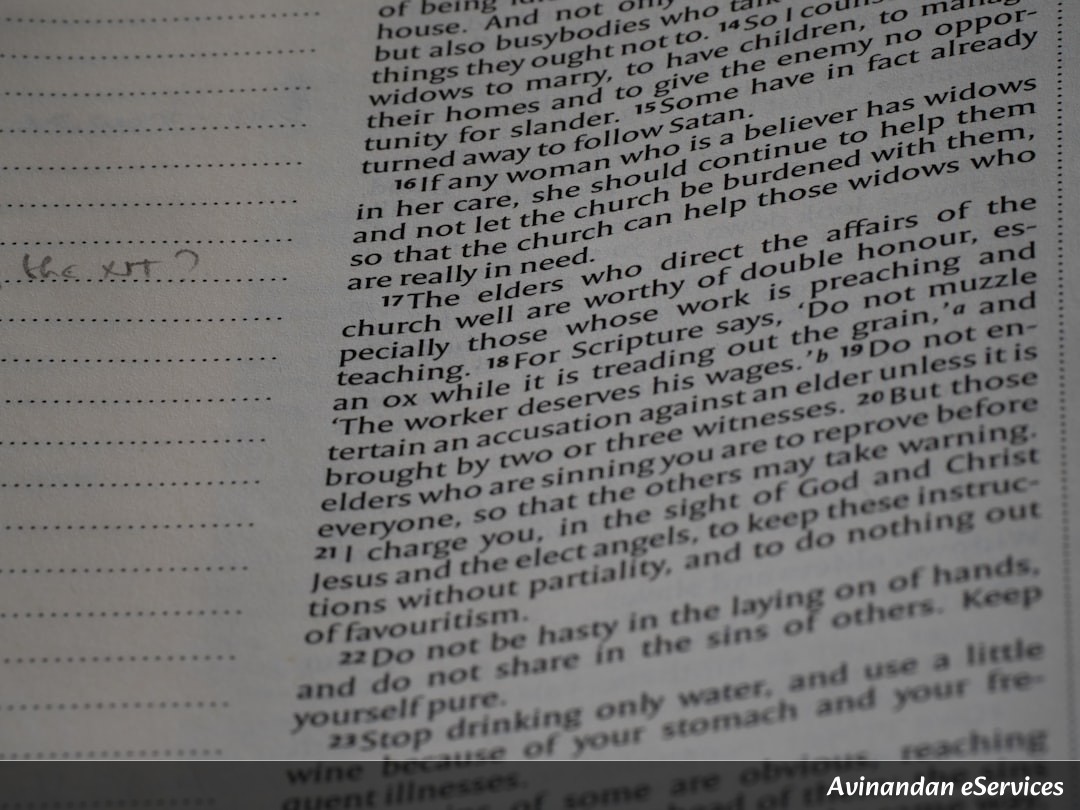 of being
house. And not only
but also busybodies who talk
things they ought not to. 14So I
widows to marry, to have children, to
their homes and to give the enemy no oppor-
tunity for slander. 15Some have in fact already
turned away to follow Satan.
16If any woman who is a believer has widows
in her care, she should continue to help them
and not let the church be burdened with them,
so that the church can help those widows who
are really in need.
the NT?
17The elders who direct the affairs of the
church well are worthy of double honour, es-
pecially those whose work is preaching and
teaching. 18For Scripture says, ‘Do not muzzle
an ox while it is treading out the grain,’a and
‘The worker deserves his wages.’b 19Do not en-
tertain an accusation against an elder unless it is
brought by two or three witnesses. 20But those
elders who are sinning you are to reprove before
everyone, so that the others may take warning.
21I charge you, in the sight of God and Christ
Jesus and the elect angels, to keep these instruc-
tions without partiality, and to do nothing out
of favouritism.
22Do not be hasty in the laying on of hands,
and do not share in the sins of others. Keep
yourself pure.
23Stop drinking only water, and use a little
wine because of your stomach and your fre-
quent illnesses.
of some are obvious, reaching
Avinandan eServices